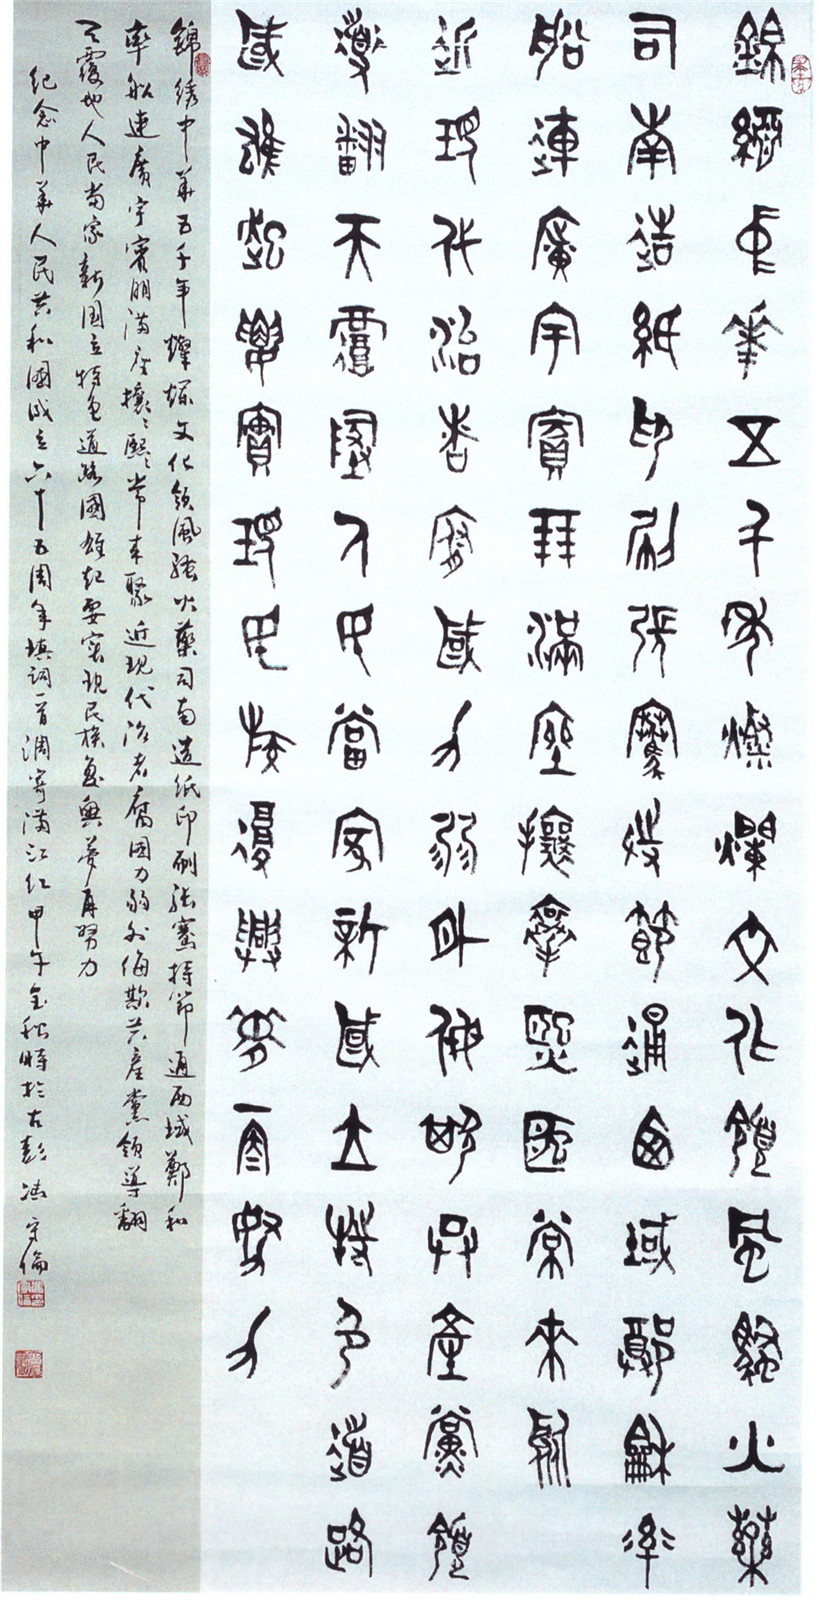 錦繡中華五千年燦爛文化領風騷火藥
司南造紙印刷張騫持節通西域鄭和率
船連廣宇賓朋滿座攘攘熙熙常來聚
近現代治者腐國力弱外侮欺共產黨領
導翻天覆地人民當家新國立特色道路
國雄起要實現民族復興夢再努力
錦绣中華五千年燦爛文化領風騷火藥司南造紙印刷張騫持節通西域鄭和
率船連廣宇賓朋滿座攘々熙々常來聚近現代治者腐国力弱外侮欺共產黨領導翻
天覆地人民當家新国立特色道路國雄起要實現民族復興夢再努力
紀念中華人民共和國成立六十五周年填詞一首調寄滿江紅甲午金秋時於古彭冯守倫